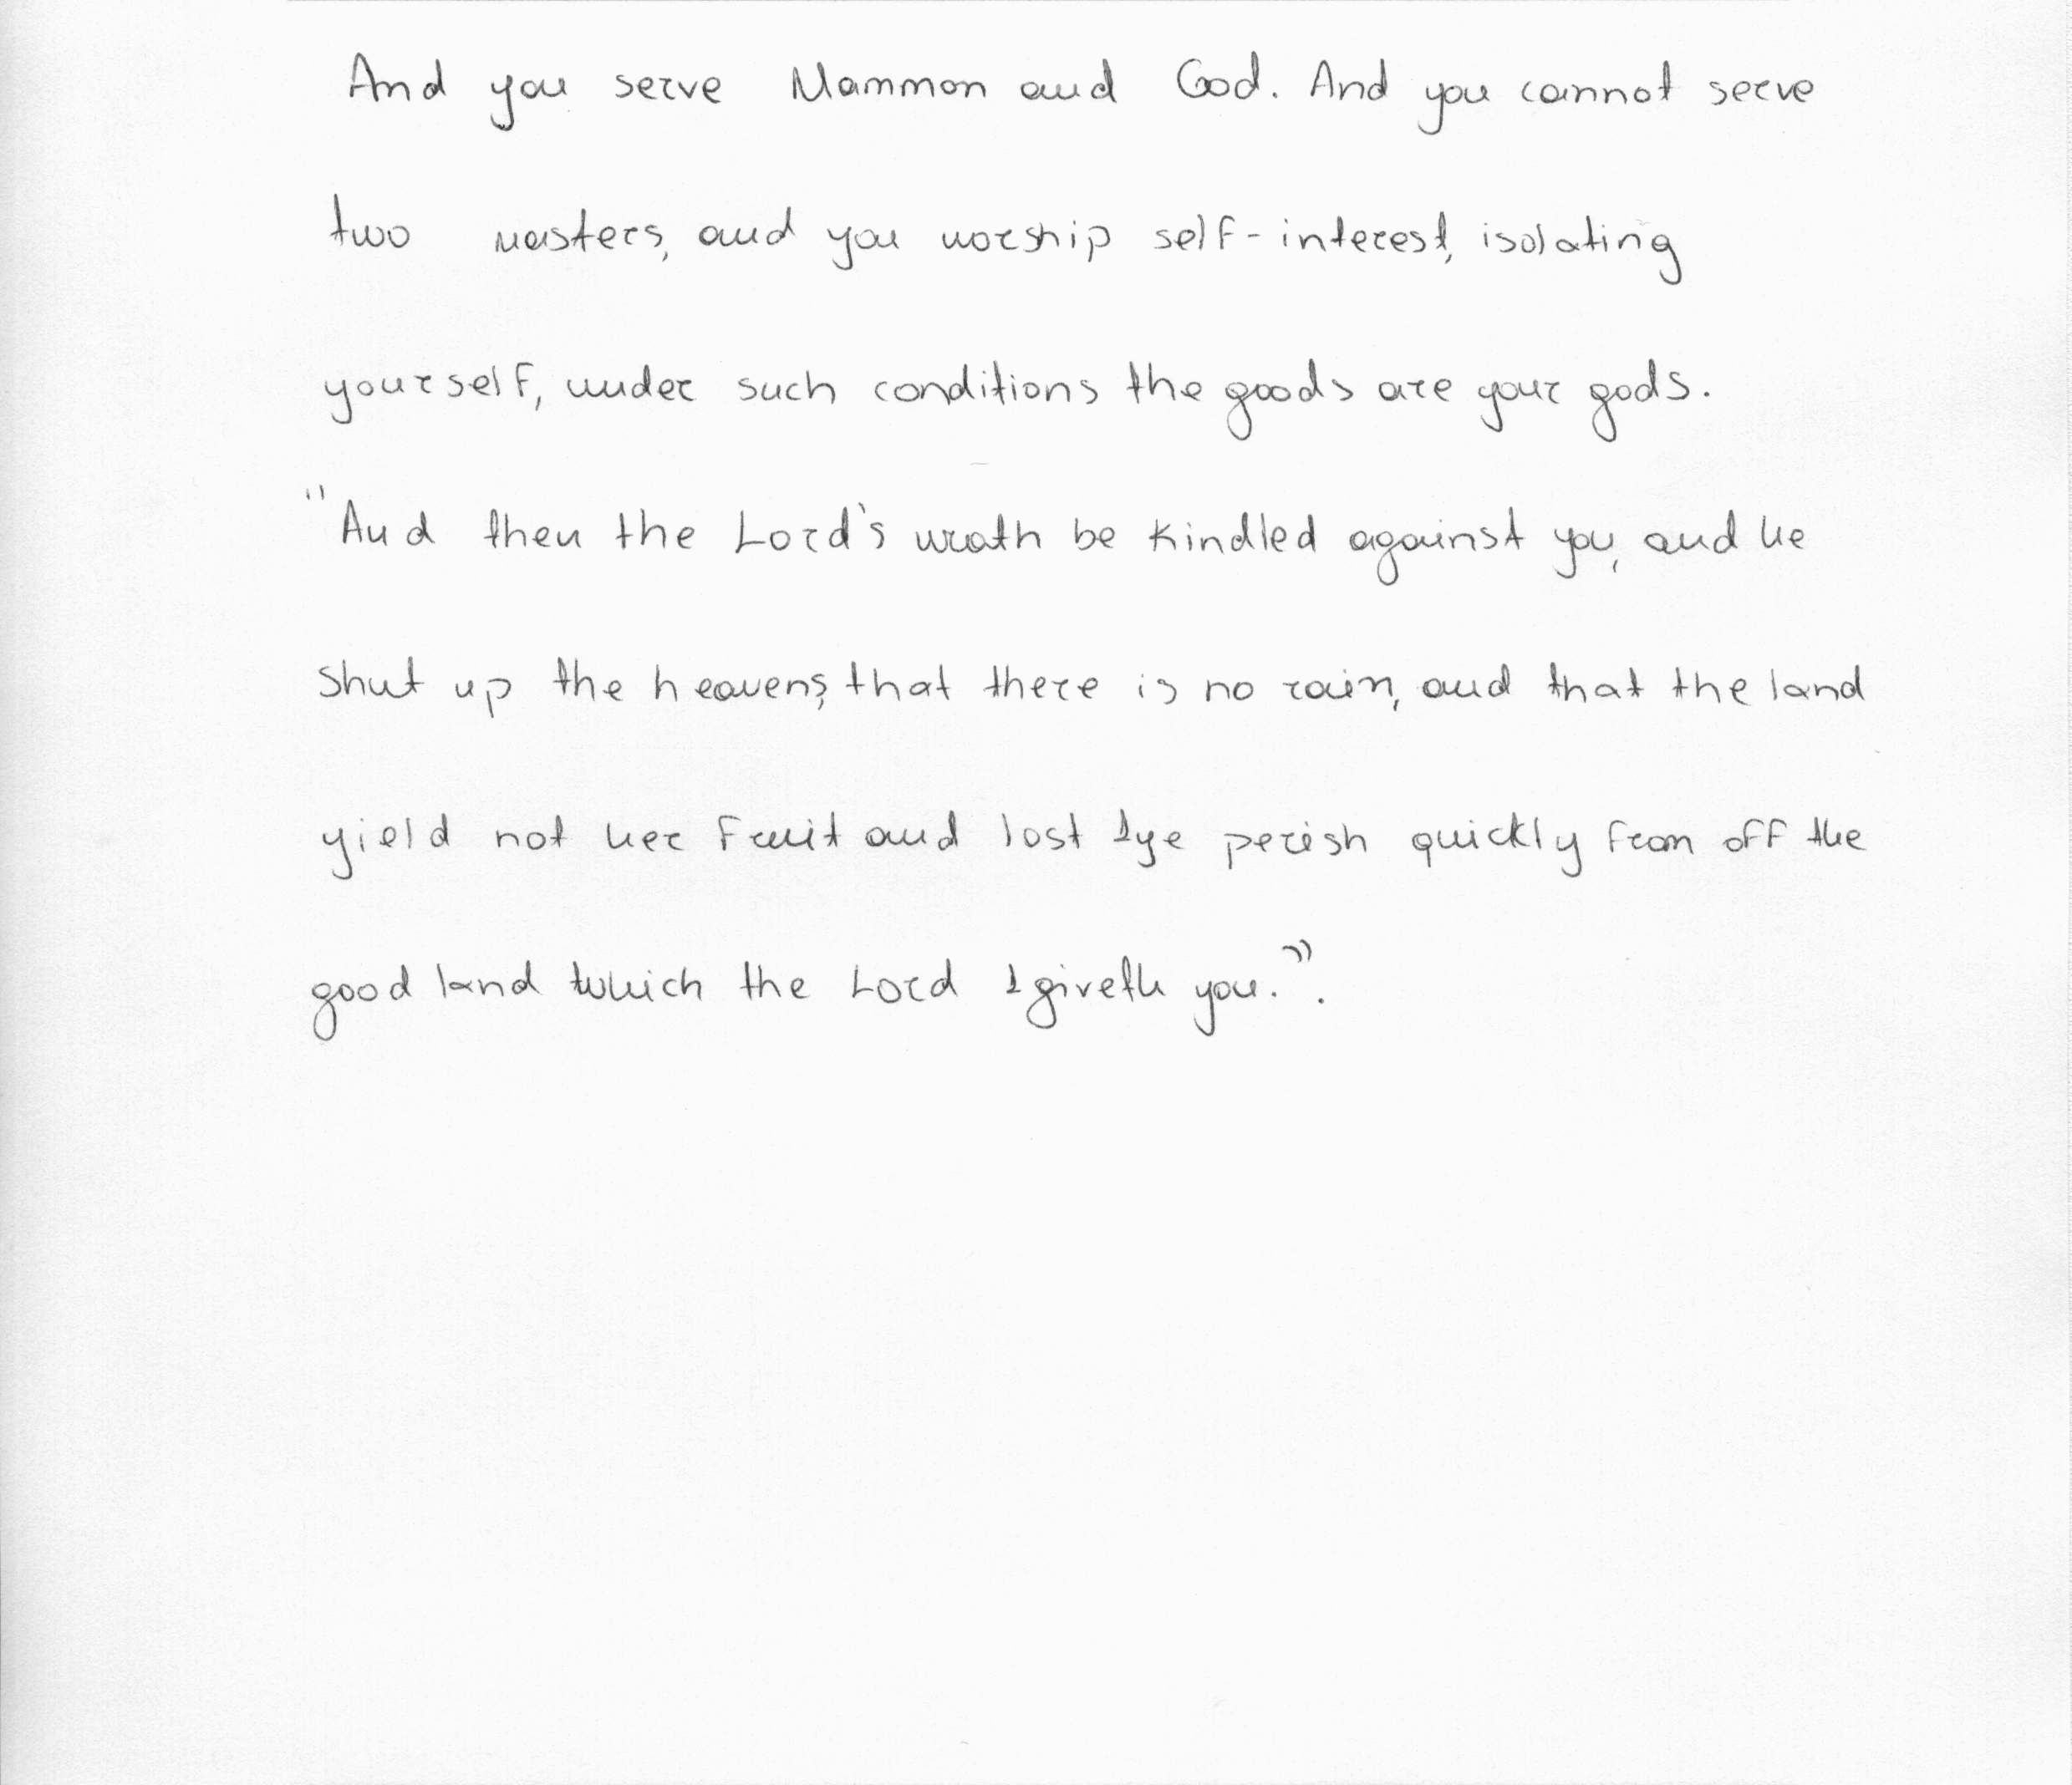 And you serve Mammon and God. And you cannot serve
two masters, and you worship self-interest, isolating
yourself, under such conditions the goods are your gods.
"And then the Lord's wrath be kindled against you, and he
shut up the heavens, that there is no rain, and that the land
yield not her fruit and lost 1ye perish quickly from off the
good land which the Lord 1giveth you.".